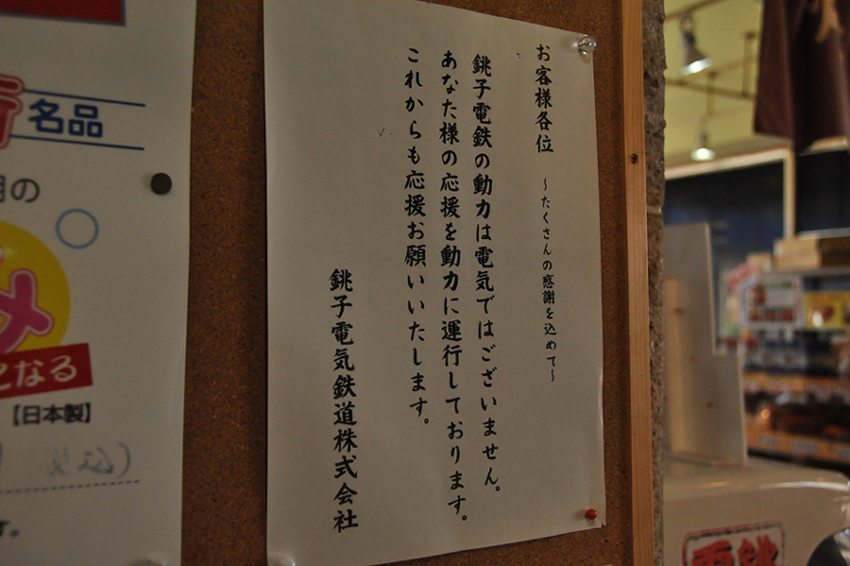 お客様各位　～たくさんの感謝を込めて～
銚子電鉄の動力は電気ではございません。
あなた様の応援を動力に運行しております。
これからも応援お願いいたします。
銚子電気鉄道株式会社
名品
用の
メ
となる
【日本製】
す。